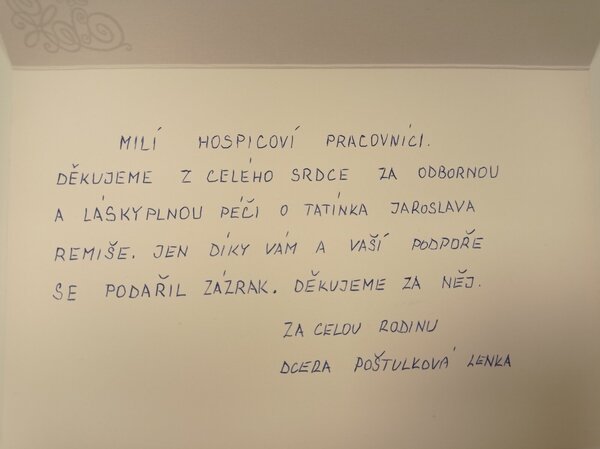 MILÍ HOSPICOVÍ PRACOVNÍCI.
DĚKUJEME Z CELÉHO SRDCE ZA ODBORNOU
A LÁSKYPLNOU PÉČI O TATÍNKA JAROSLAVA
REMIŠE. JEN DÍKY VÁM A VAŠÍ PODPOŘE
SE PODAŘIL ZÁZRAK. DĚKUJEME ZA NĚJ.
ZA CELOU RODINU
DCERA POŠTULKOVÁ LENKA